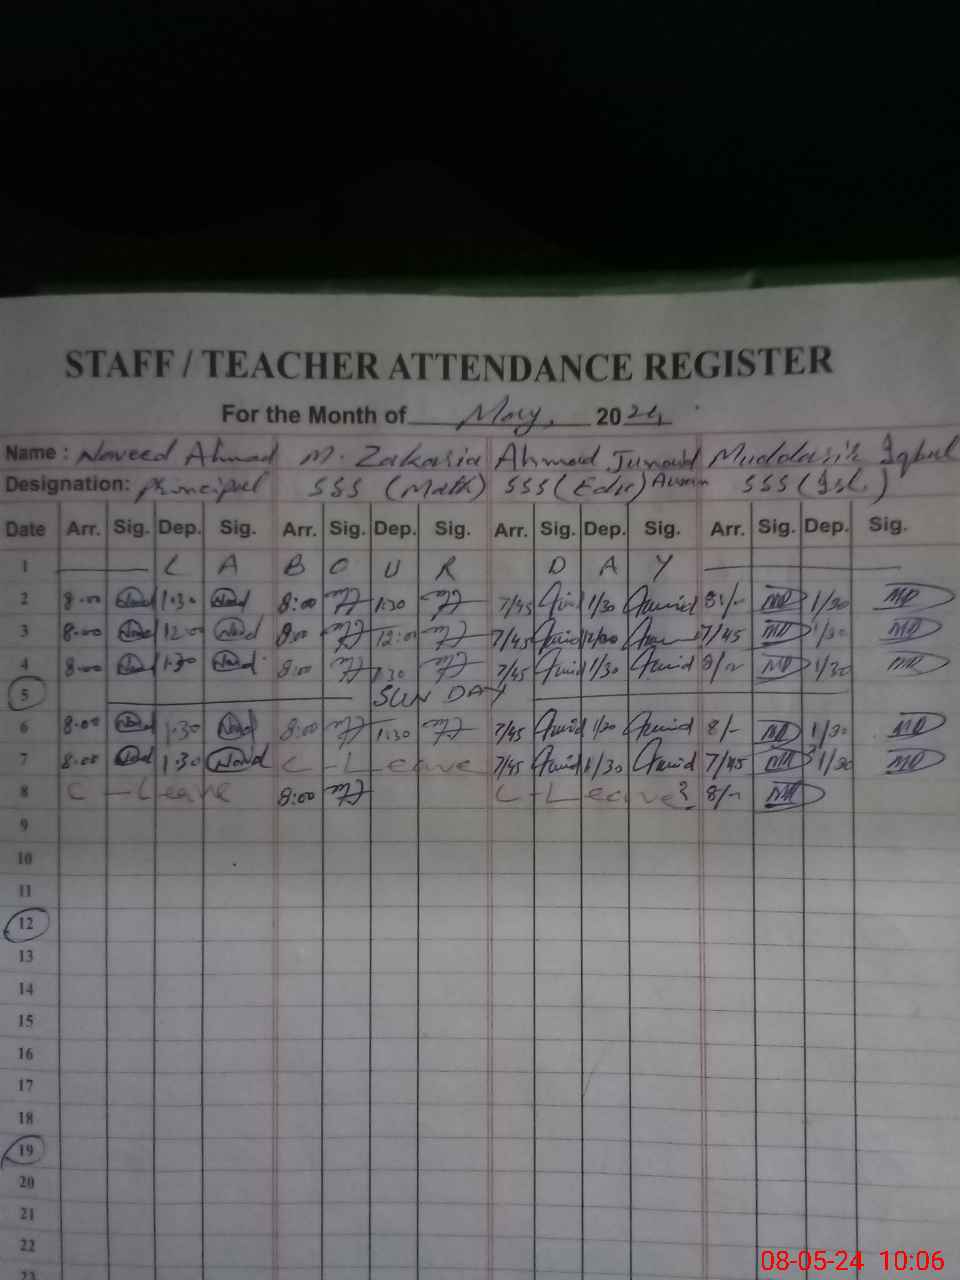 STAFF / TEACHER ATTENDANCE REGISTER
For the Month of May, 2024
Name : Naveed Ahmad M. Zakaria Ahmad Junaid Muddasir Iqbal
Designation: Principal SSS (Math) SSS (Edu) SSS (Isl.)
Date Arr. Sig. Dep. Sig. Arr. Sig. Dep. Sig. Arr. Sig. Dep. Sig. Arr. Sig. Dep. Sig.
1 L A B O U R D A Y
2 8-00 1-30 8:00 1:30 7/45 1/30 8/- MD 1/30 MD
3 8-00 12-00 8:00 12:00 7/45 12/00 7/45 MD 1/30 MD
4 8-00 1-30 8:00 1:30 7/45 1/30 8/- MD 1/30 MD
5 SUN DAY
6 8-00 1-30 8:00 1:30 7/45 1/30 8/- MD 1/30 MD
7 8-00 1-30 C-Leave 7/45 1/30 7/45 MD 1/30 MD
8 C-Leave 8:00 C-Leave? 8/- MD
9
10
11
12
13
14
15
16
17
18
19
20
21
22
23
08-05-24 10:06